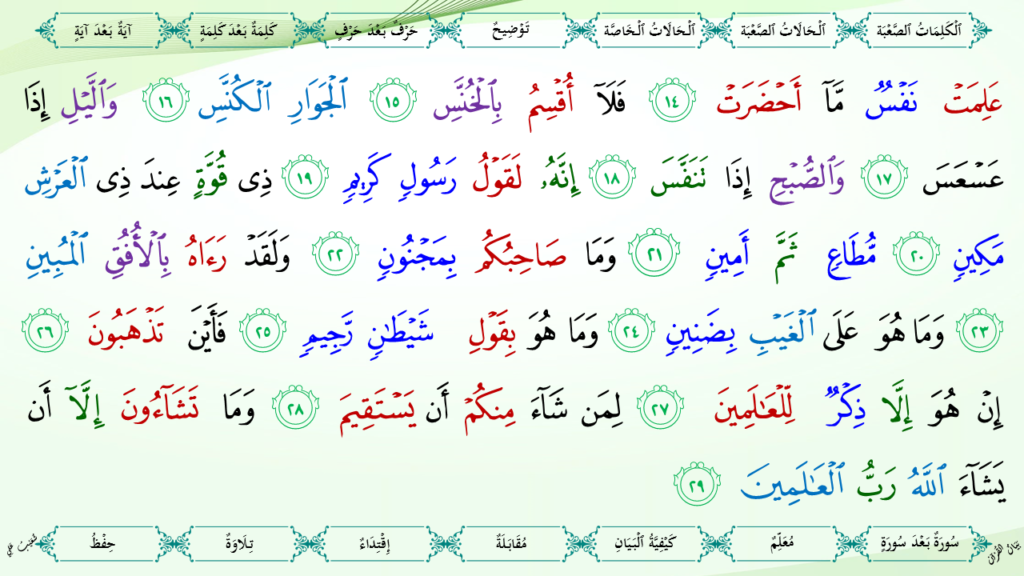 اَلْكَلِمَاتُ الصَّعْبَةُ اَلْحَالَاتُ الصَّعْبَةُ اَلْحَالَاتُ الْخَاصَّةُ تَوْضِيحٌ حَرْفٌ بَعْدَ حَرْفٍ كَلِمَةٌ بَعْدَ كَلِمَةٍ آيَةٌ بَعْدَ آيَةٍ
عَلِمَتْ نَفْسٌ مَّآ أَحْضَرَتْ ١٤ فَلَآ أُقْسِمُ بِٱلْخُنَّسِ ١٥ ٱلْجَوَارِ ٱلْكُنَّسِ ١٦ وَٱلَّيْلِ إِذَا
عَسْعَسَ ١٧ وَٱلصُّبْحِ إِذَا تَنَفَّسَ ١٨ إِنَّهُۥ لَقَوْلُ رَسُولٍ كَرِيمٍ ١٩ ذِى قُوَّةٍ عِندَ ذِى ٱلْعَرْشِ
مَكِينٍ ٢٠ مُّطَاعٍ ثَمَّ أَمِينٍ ٢١ وَمَا صَاحِبُكُم بِمَجْنُونٍ ٢٢ وَلَقَدْ رَءَاهُ بِٱلْأُفُقِ ٱلْمُبِينِ
٢٣ وَمَا هُوَ عَلَى ٱلْغَيْبِ بِضَنِينٍ ٢٤ وَمَا هُوَ بِقَوْلِ شَيْطَٰنٍ رَّجِيمٍ ٢٥ فَأَيْنَ تَذْهَبُونَ ٢٦
إِنْ هُوَ إِلَّا ذِكْرٌ لِّلْعَٰلَمِينَ ٢٧ لِمَن شَآءَ مِنكُمْ أَن يَسْتَقِيمَ ٢٨ وَمَا تَشَآءُونَ إِلَّآ أَن
يَشَآءَ ٱللَّهُ رَبُّ ٱلْعَٰلَمِينَ ٢٩
سُورَةٌ بَعْدَ سُورَةٍ مُعَلِّمٌ كَيْفِيَّةُ الْبَيَانِ مُقَابَلَةٌ إِقْتِدَاءٌ تِلَاوَةٌ حِفْظُ